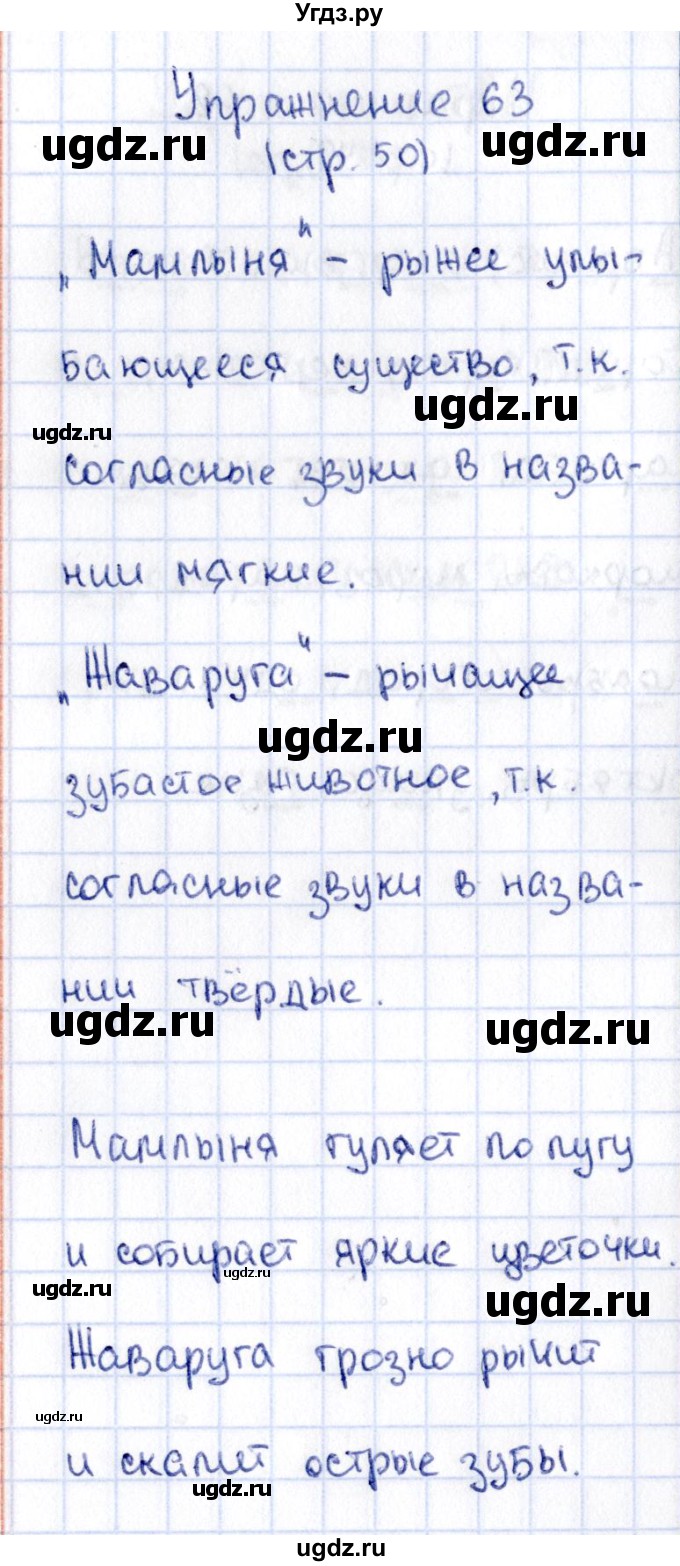 Угдз.ру
Упражнение 63
ugdz.ru ugdz.ru
(стр. 50)
„Мамлыня" – рыжее улы-
бающееся существо, т.к.
ugdz.ru
ugdz.ru
согласные звуки в назва-
нии мягкие.
„Жаваруга" – рычащее
ugdz.ru
зубастое животное, т.к.
согласные звуки в назва-
нии твёрдые.
ugdz.ru ugdz.ru
Мамлыня гуляет по лугу
и собирает яркие цветочки.
ugdz.ru ugdz.ru ugdz.ru
Жаваруга грозно рычит
ugdz.ru
и скалит острые зубы.
ugdz.ru ugdz.ru
ugdz.ru